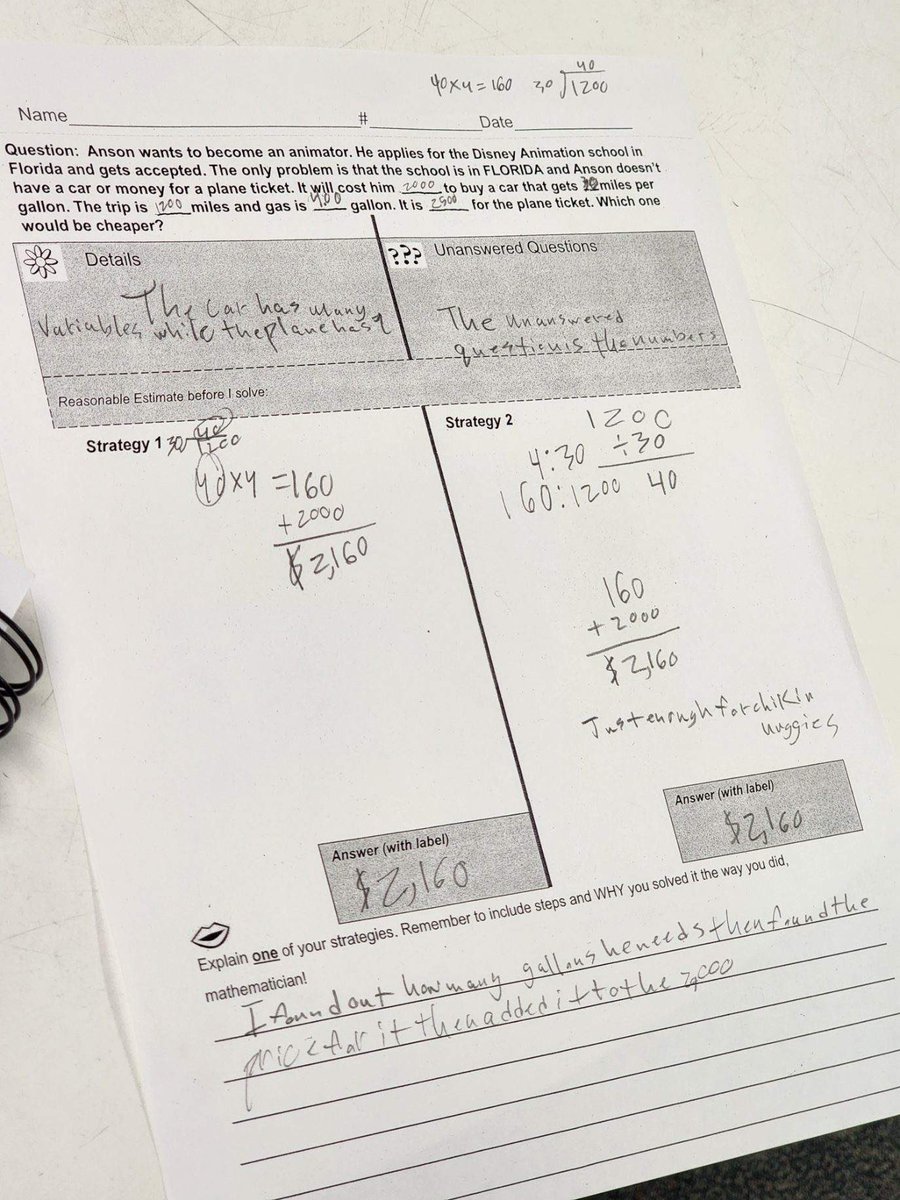 40x4=160 30 40
1200
Name # Date
Question: Anson wants to become an animator. He applies for the Disney Animation school in
Florida and gets accepted. The only problem is that the school is in FLORIDA and Anson doesn't
have a car or money for a plane ticket. It will cost him 2000 to buy a car that gets miles per
gallon. The trip is 1200 miles and gas is 4.00 gallon. It is 2500 for the plane ticket. Which one
would be cheaper?
Details
The car has many
Variables while the plane has 1
??? Unanswered Questions
The unanswered
question is the numbers
Reasonable Estimate before I solve:
Strategy 1 30 40
1200
40x4 =160
+2000
$2,160
Strategy 2
1200
÷30
40
4:30
160:1200
160
+2000
$2,160
Just enough for chikin
nuggies
Answer (with label)
$2,160
Answer (with label)
$2,160
Explain one of your strategies. Remember to include steps and WHY you solved it the way you did,
mathematician!
I found out how many gallons he needs then found the
price for it then added it to the 2,000